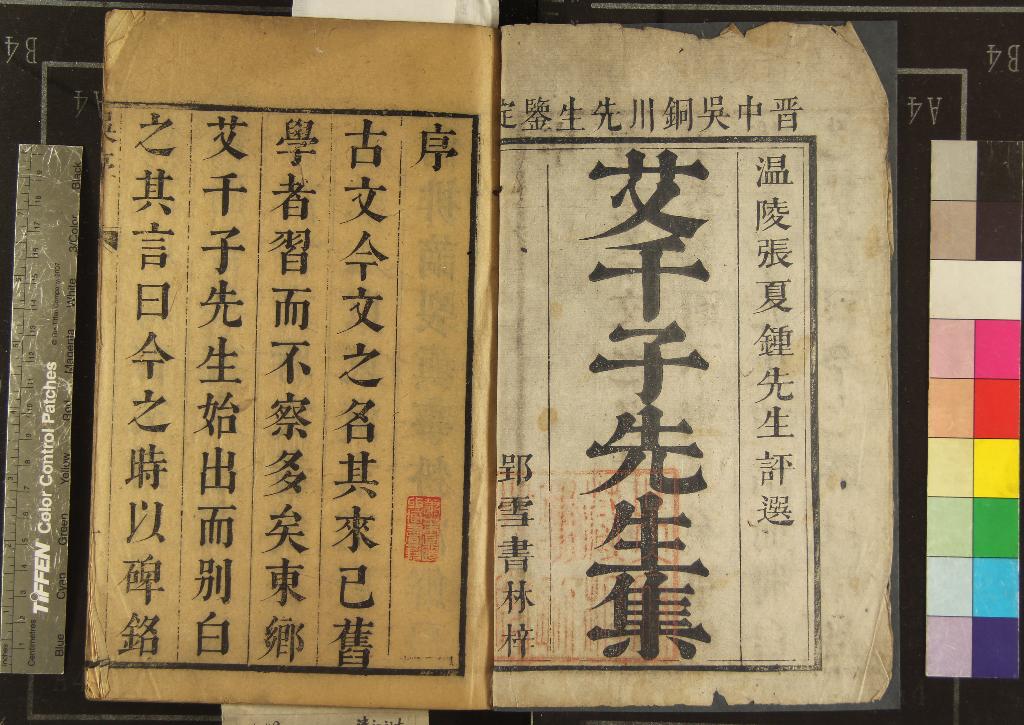 晋中吳銅川先生鑒定
温陵張夏鍾先生評選
艾千子先生集
郢雪書林梓
序
古文今文之名其來已舊
學者習而不察多矣東鄉
艾千子先生始出而别白
之其言曰今之時以碑銘
B4
A4
B4
A4
TIFFEN Color Control Patches
© The Tiffen Company, 2007
Inches
Centimetres
Blue
Cyan
Green
Yellow
Red
Magenta
White
3/Color
Black